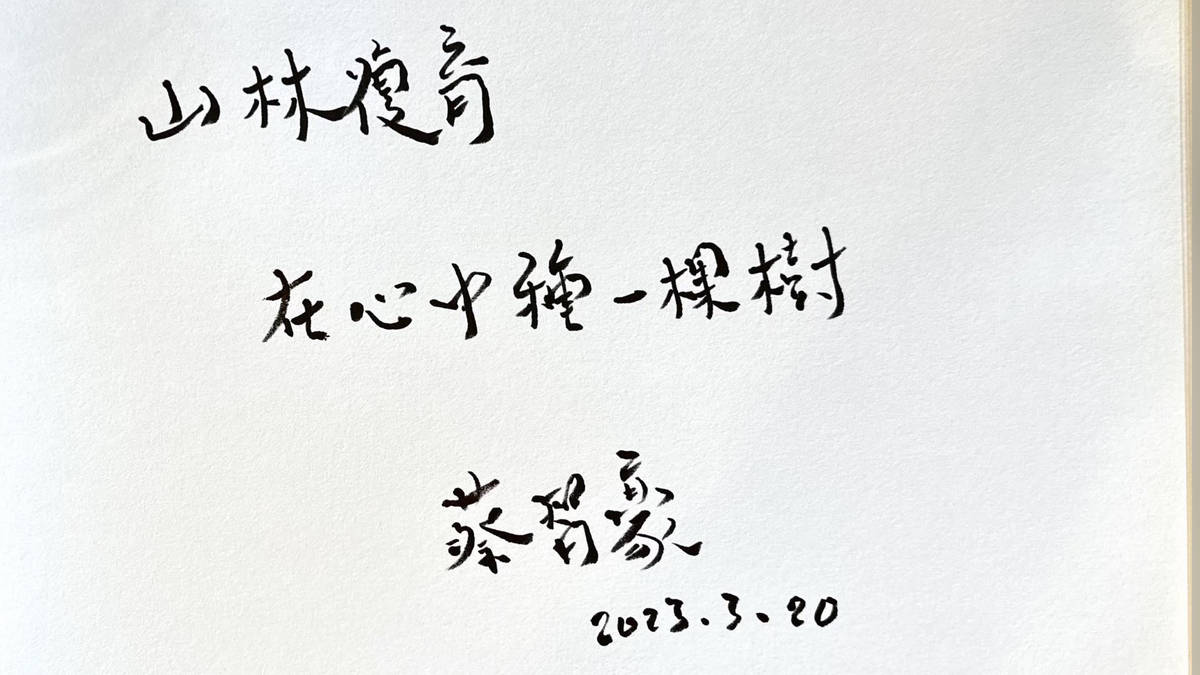 山林復育
在心中種一棵樹
蔡智豪
2023.3.20